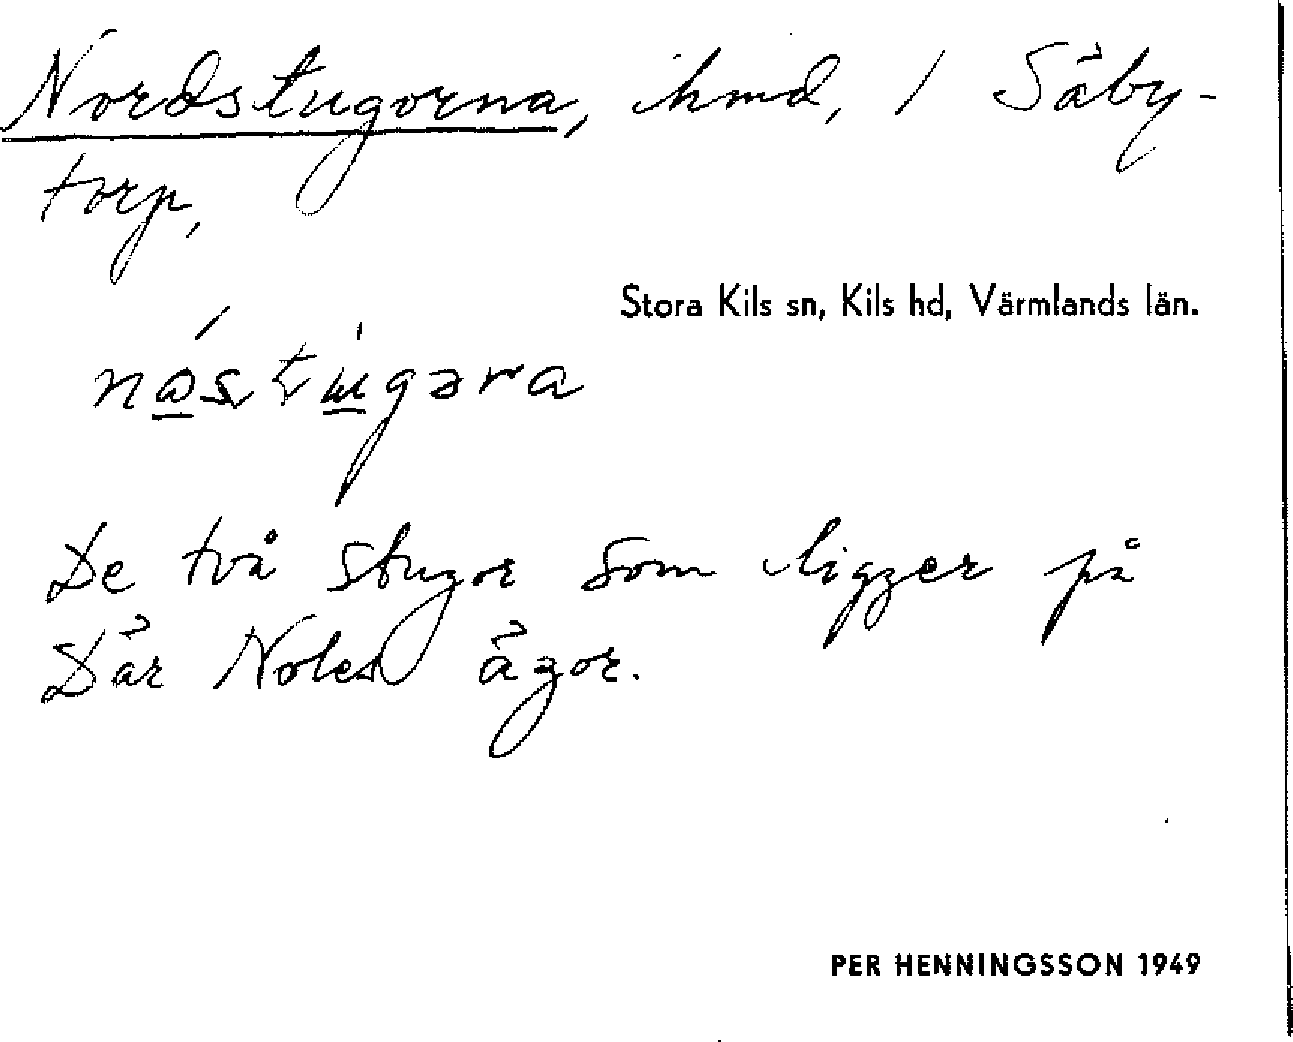 Nordstugorna, ihmd, 1 Säby-
torp,
Stora Kils sn, Kils hd, Värmlands län.
De två stugor som ligger på
Där Noles ägor.
PER HENNINGSSON 1949